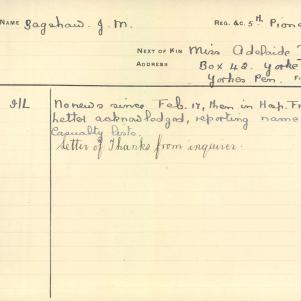 NAME Bagshaw. J. M. REG. &C. 5th. Pione
NEXT OF KIN Miss Adelaide
ADDRESS Box 42. Yorke
Yorkes Pen.
I/L No news since Feb. 17, then in Hosp. Fr
Letter acknowledged, reporting name
Casualty Lists.
Letter of Thanks from inquirer.